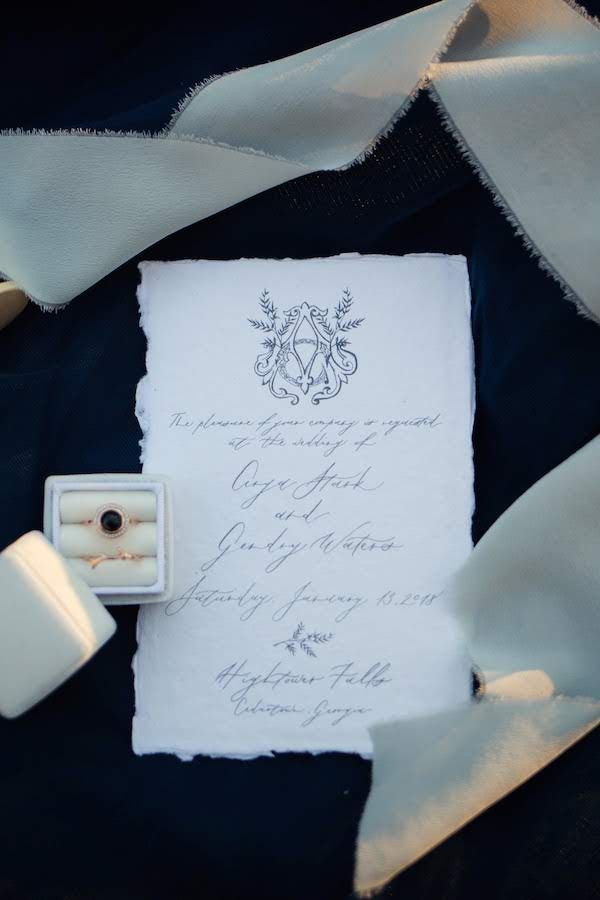 The pleasure of your company is requested
at the wedding of
Arya Stark
and
Gendry Waters
Saturday, January 13, 2018
Hightower Falls
Cedartown, Georgia